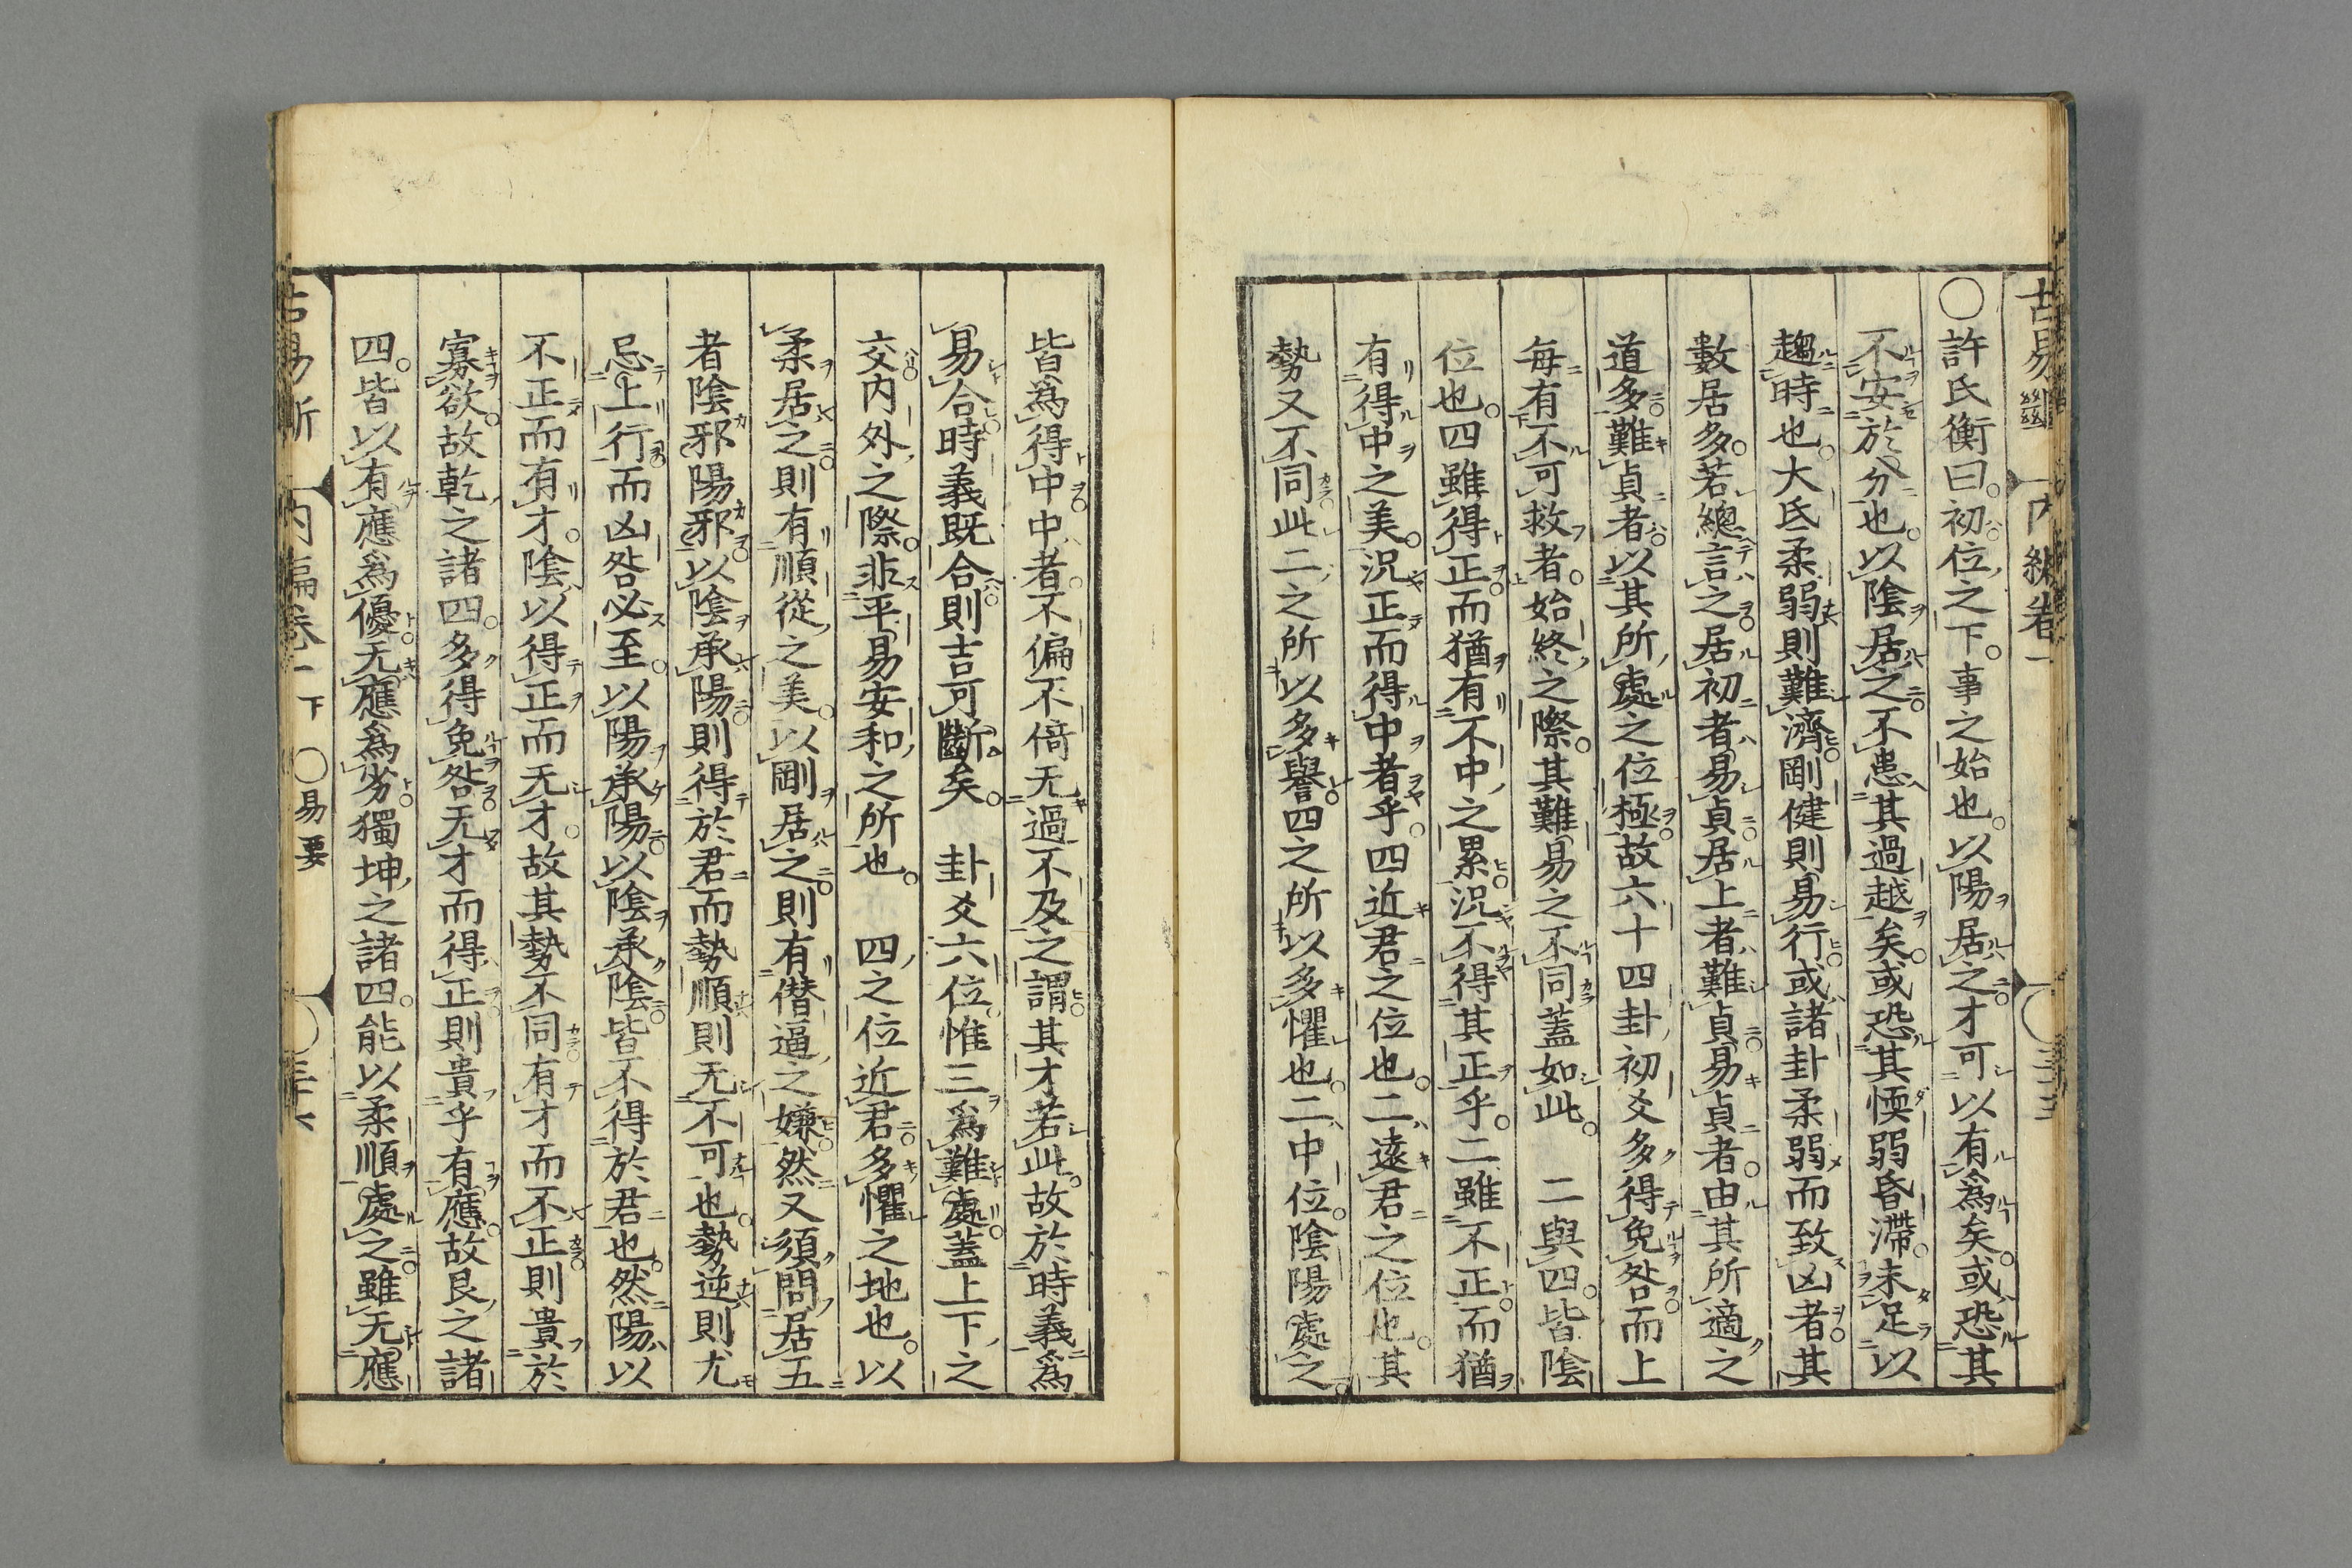 古易斷 内編卷一
〇許氏衡曰初位之下事之始也以陽居之才可以有爲矣或恐其
不安於分也以陰居之不患其過越矣或恐其懦弱昏滯未足以
趨時也大氐柔弱則難濟剛健則易行或諸卦柔弱而致凶者其
數居多若總言之居初者易貞居上者難貞易貞者由其所適之
道多難貞者以其所處之位極故六十四卦初爻多得免咎而上
每有不可救者始終之際其難易之不同蓋如此 二與四皆陰
位也四雖得正而猶有不中之累況不得其正乎二雖不正而猶
有得中之美況正而得中者乎四近君之位也二遠君之位也其
勢又不同此二之所以多譽四之所以多懼也二中位陰陽處之
皆爲得中中者不偏不倚无過不及之謂其才若此故於時義爲
易合時義既合則吉可斷矣 卦爻六位惟三爲難處蓋上下之
交内外之際非平易安和之所也 四之位近君多懼之地也以
柔居之則有順從之美以剛居之則有僣逼之嫌然又須問居五
者陰邪陽邪以陰承陽則得於君而勢順則无不可也勢逆則尤
忌上行而凶咎必至以陽承陽以陰承陰皆不得於君也然陽以
不正而有才陰以得正而无才故其勢不同有才而不正則貴於
寡欲故乾之諸四多得免咎无才而得正則貴乎有應故艮之諸
四皆以有應爲優无應爲劣獨坤之諸四能以柔順處之雖无應
古易斷 内編卷一下 〇易要